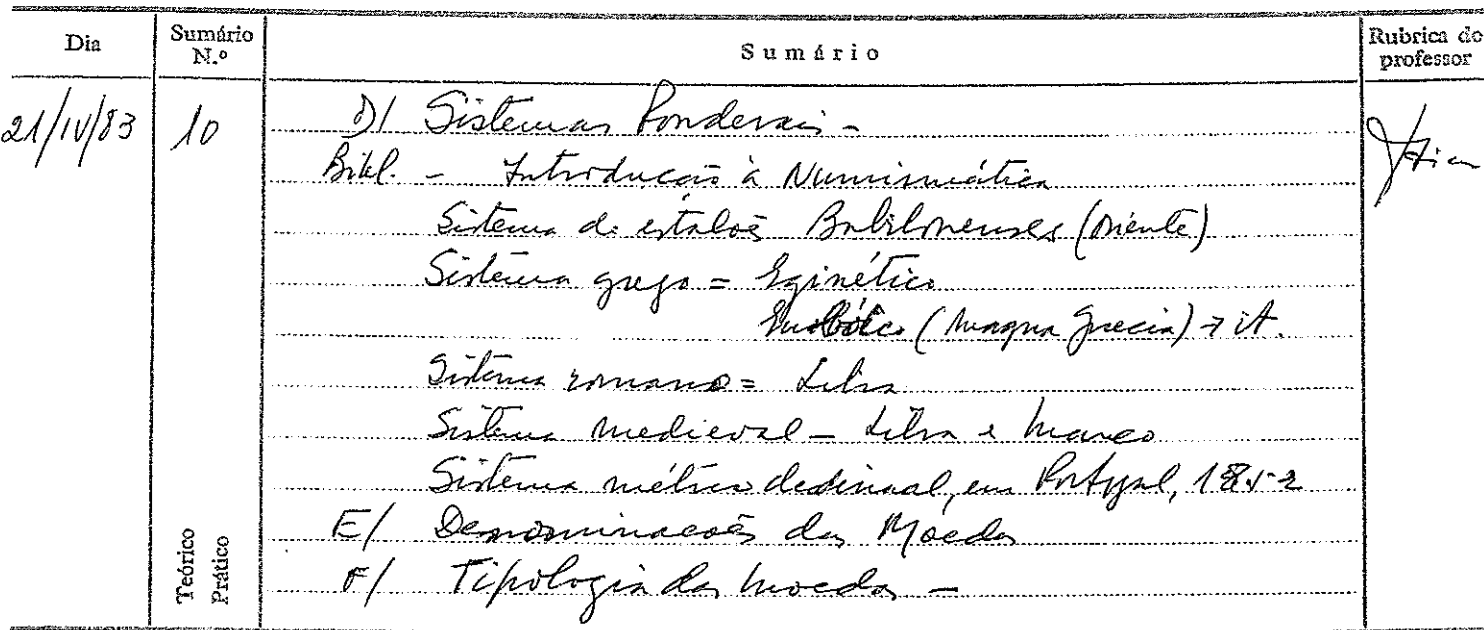 Dia
Sumário N.º
Sumário
Rubrica do professor
21/IV/83
10
D/ Sistemas Ponderais -
Bibl. - Introdução à Numismática
Sistema de estalões Babilonenses (Oriente)
Sistema grego = Eginético
Euboico (Magna Grecia) → it.
Sistema romano = Libra
Sistema medieval - Libra e Marco
Sistema métrico decimal, em Portugal, 1852
E/ Denominações das Moedas
F/ Tipologia das moedas -
Teórico
Prático